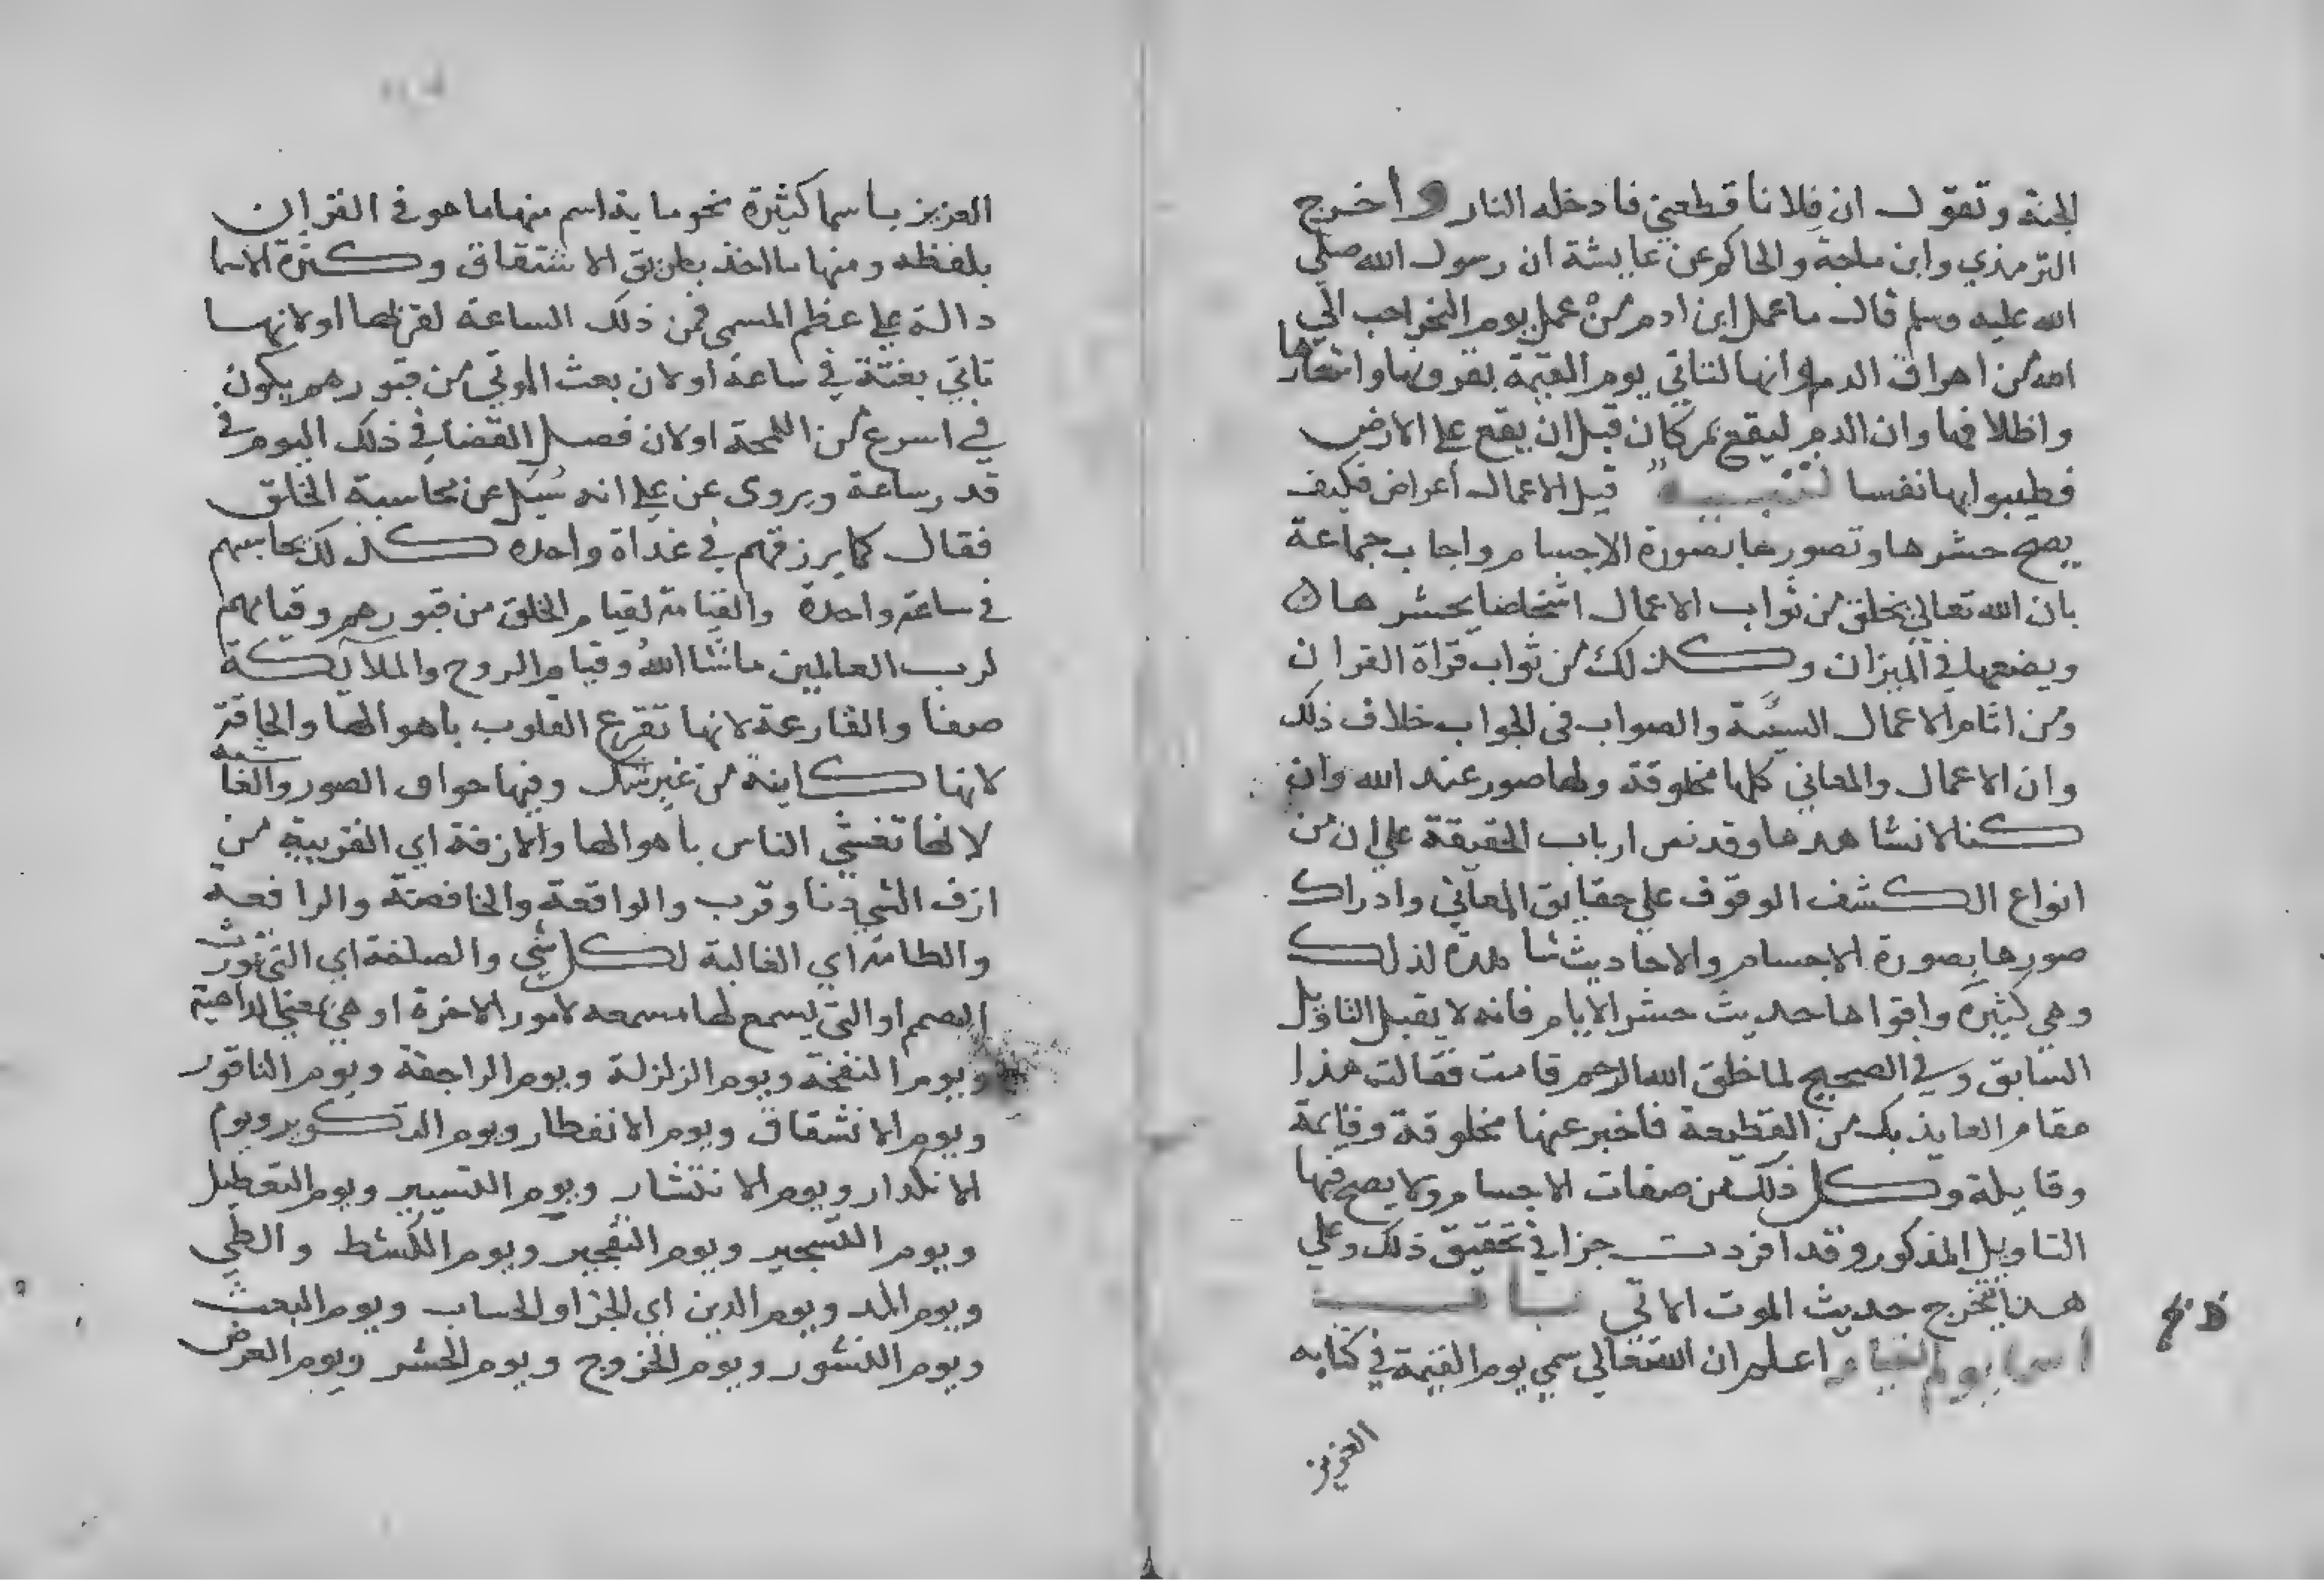 الجنة وتقول ان فلانا قطعني فادخله النار واخرج
الترمذي وابن ماجة والحاكم عن عايشة ان رسول الله صلي
الله عليه وسلم قال ما عمل ابن ادم من عمل يوم النحر احب الي
الله من اهراق الدم وانها لتاتي يوم القيمة بقرونها واشعارها
واظلافها وان الدم ليقع بمكان قبل ان يقع علي الارض
فطيبوا بها نفسا تنبيه قيل الاعمال أعراض فكيف
يصح حشرها وتصورها بصورة الاجسام واجاب جماعة
بان الله تعالي يخلق من ثواب الاعمال اشخاصا يحشرها
ويضعها في الميزان وكذلك من ثواب قراة القران
ومن اثام الاعمال السيئة والصواب في الجواب خلاف ذلك
وان الاعمال والمعاني كلها مخلوقة ولها صور عند الله وان
كنا لا نشاهدها وقد نص ارباب الحقيقة علي ان من
انواع الكشف الوقوف علي حقايق المعاني وادراك
صورها بصورة الاجسام والاحاديث شاهدة لذلك
وهي كثيرة واقواها حديث حشر الايام فانه لا يقبل التاويل
السابق وفي الصحيح لما خلق الله الرحم قامت فقالت هذا
مقام العايذ بك من القطيعة فاخبر عنها مخلوقة وقايمة
وقايلة وكل ذلك من صفات الاجسام ولا يصح فيها
التاويل المذكور وقد افردت جزا في تحقيق ذلك وعلي
هذا يخرج حديث الموت الاتي باب
اسما يوم القيامة واعلم ان الله تعالي سمي يوم القيمة في كتابه
العزيز
العزيز باسما كثيرة نحو ماية اسم منها ما هو في القران
بلفظه ومنها ما اخذ بطريق الاشتقاق وكثرة الاسما
دالة علي عظم المسمي فمن ذلك الساعة لقربها اولانها
تاتي بغتة في ساعة اولان بعث الموتي من قبورهم يكون
في اسرع من اللمحة اولان فصل القضا في ذلك اليوم في
قدر ساعة ويروي عن علي انه سئل عن محاسبة الخلق
فقال كما يرزقهم في غداة واحده كذلك يحاسبهم
في ساعة واحدة والقيامة لقيام الخلق من قبورهم وقيامهم
لرب العالمين ما شا الله وقيام الروح والملآيكة
صفا والقارعة لانها تقرع القلوب باهوالها والحاقة
لانها كاينة من غير شك وفيها حواق الصور والغاشية
لانها تغشي الناس باهوالها والازفة اي القريبة من
ازف الشي دنا وقرب والواقعة والخافضة والرافعة
والطامة اي الغالبة لكل شي والصاخة اي التي تورث
الصمم او التي يسمع لها مسمعه لامور الاخرة او هي بمعني الداهية
ويوم النفخة ويوم الزلزلة ويوم الراجفة ويوم الناقور
ويوم الانشقاق ويوم الانفطار ويوم التكوير ويوم
الانكدار ويوم الانتشار ويوم التسيير ويوم التعطيل
ويوم التسجير ويوم التفجير ويوم الكشط والطي
ويوم المد ويوم الدين اي الجزا والحساب ويوم البعث
ويوم النشور ويوم الخروج ويوم الحشر ويوم العرض